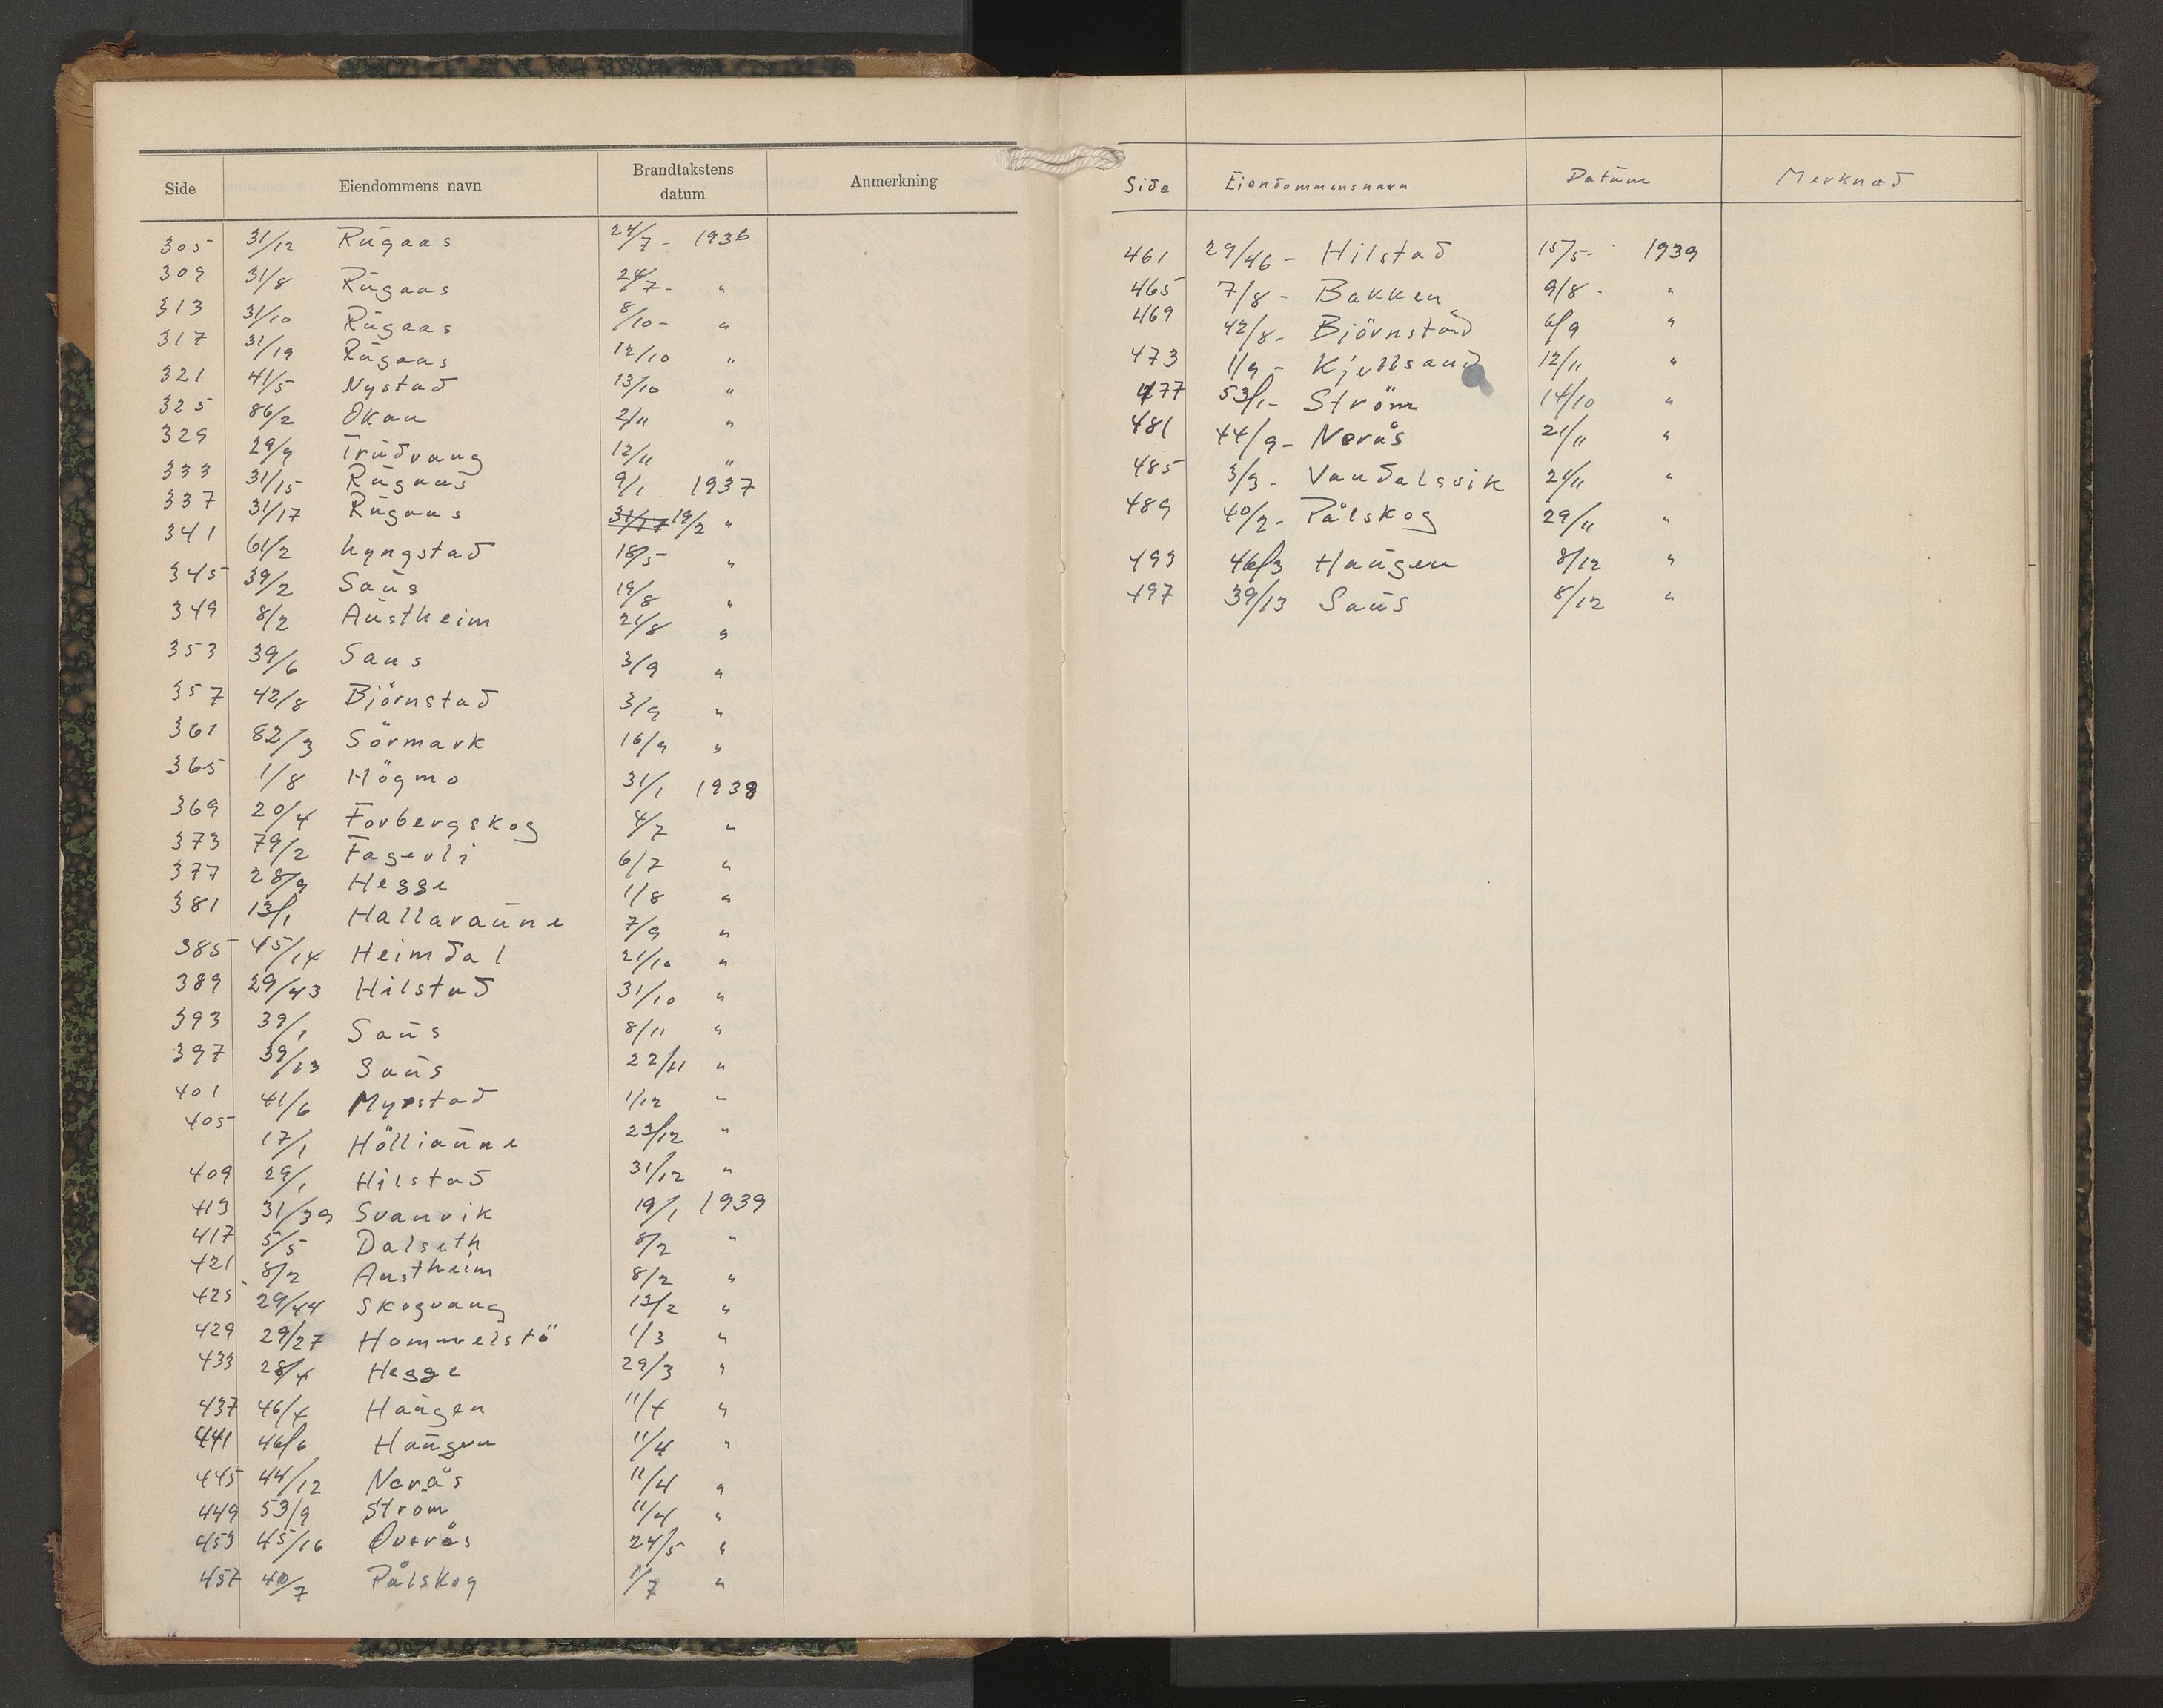 Side Eiendommens navn Brandtakstens datum Anmerkning
305 31/12 Rügaas 24/7 - 1936
309 31/8 Rügaas 24/7 - "
313 31/10 Rügaas 8/10 - "
317 31/19 Rügaas 12/10 "
321 41/5 Nystad 13/10 "
325 86/2 Okan 2/11 "
329 29/9 Trüdvang 12/11 "
333 31/15 Rügaas 9/1 1937
337 31/17 Rügaas 31/17 19/2 "
341 61/2 Lyngstad 18/5 "
345 39/2 Saüs 19/8 "
349 8/2 Aüstheim 21/8 "
353 39/6 Saus 3/9 "
357 42/8 Björnstad 3/9 "
361 82/3 Sörmark 16/9 "
365 1/8 Högmo 31/1 1938
369 20/4 Forbergskog 4/7 "
373 79/2 Fagerli 6/7 "
377 28/9 Hegge 1/8 "
381 13/1 Hallaraüne 7/9 "
385 45/14 Heimdal 21/10 "
389 29/43 Hilstad 31/10 "
393 39/1 Saüs 8/11 "
397 39/13 Saüs 22/11 "
401 41/6 Myrstad 1/12 "
405 17/1 Hölliaüne 23/12 "
409 29/1 Hilstad 31/12 "
413 31/39 Svanvik 19/1 1939
417 5/5 Dalseth 8/2 "
421 8/2 Austheim 8/2 "
425 29/44 Skogvang 13/2 "
429 29/27 Hommelstö 1/3 "
433 28/4 Hegge 29/3 "
437 46/4 Haügen 11/4 "
441 46/6 Haügen 11/4 "
445 44/12 Nerås 11/4 "
449 53/9 Ström 11/4 "
453 45/16 Överås 24/5 "
457 40/7 Pålskog 1/7 "
Side Eiendommensnavn Datüm Merknad
461 29/46 - Hilstad 15/5 - 1939
465 7/8 - Bakken 9/8 - "
469 42/8 - Björnstad 6/9 "
473 1/9 - Kjellsand 12/11 "
477 53/1 - Ström 14/10 "
481 44/9 - Nerås 21/11 "
485 3/3 - Vandalsvik 21/11 "
489 40/2 - Pålskog 29/11 "
493 46/3 Haügen 8/12 "
497 39/13 Saüs 8/12 "